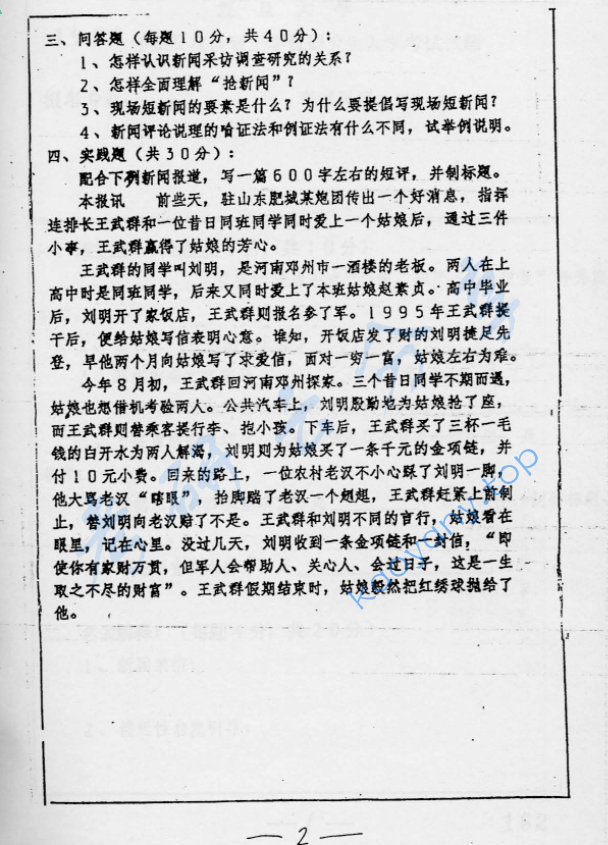 三、问答题（每题10分，共40分）：
1、怎样认识新闻采访调查研究的关系？
2、怎样全面理解“抢新闻”？
3、现场短新闻的要素是什么？为什么要提倡写现场短新闻？
4、新闻评论说理的喻证法和例证法有什么不同，试举例说明。
四、实践题（共30分）：
配合下列新闻报道，写一篇600字左右的短评，并制标题。
本报讯　前些天，驻山东肥城某炮团传出一个好消息，指挥
连排长王武群和一位昔日同班同学同时爱上一个姑娘后，通过三件
小事，王武群赢得了姑娘的芳心。
王武群的同学叫刘明，是河南邓州市一酒楼的老板。两人在上
高中时是同班同学，后来又同时爱上了本班姑娘赵素贞。高中毕业
后，刘明开了家饭店，王武群则报名参了军。1995年王武群提
干后，便给姑娘写信表明心意。谁知，开饭店发了财的刘明捷足先
登，早他两个月向姑娘写了求爱信，面对一穷一富，姑娘左右为难。
今年8月初，王武群回河南邓州探家。三个昔日同学不期而遇，
姑娘也想借机考验两人。公共汽车上，刘明殷勤地为姑娘抢了座，
而王武群则替乘客提行李、抱小孩。下车后，王武群买了三杯一毛
钱的白开水为两人解渴，刘明则为姑娘买了一条千元的金项链，并
付10元小费。回来的路上，一位农村老汉不小心踩了刘明一脚，
他大骂老汉“瞎眼”，抬脚踹了老汉一个趔趄，王武群赶紧上前制
止，替刘明向老汉赔了不是。王武群和刘明不同的言行，姑娘看在
眼里，记在心里。没过几天，刘明收到一条金项链和一封信，“即
使你有家财万贯，但军人会帮助人、关心人、会过日子，这是一生
取之不尽的财富”。王武群假期结束时，姑娘毅然把红绣球抛给了
他。
kaoyany.top
— 2 —
182